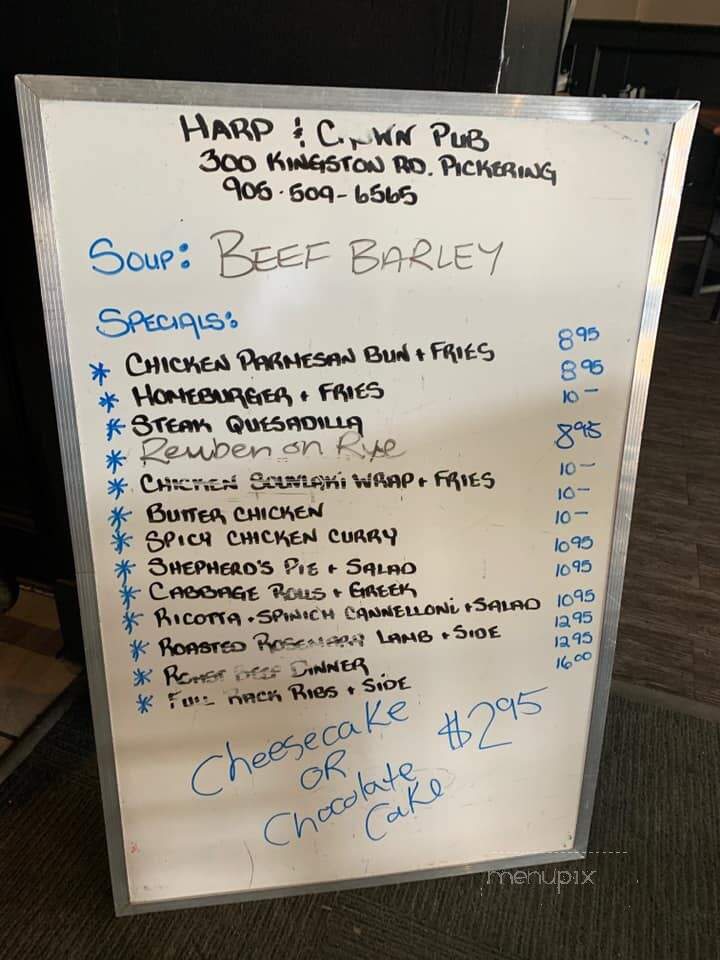 HARP & CROWN PUB
300 KINGSTON RD. PICKERING
905-509-6565
SOUP: BEEF BARLEY
SPECIALS:
* CHICKEN PARMESAN BUN + FRIES 8 95
* HOMEBURGER + FRIES 8 95
* STEAK QUESADILLA 10 -
* Reuben on Rye 8 95
* CHICKEN SOUVLAKI WRAP + FRIES 10 -
* BUTTER CHICKEN 10 -
* SPICY CHICKEN CURRY 10 -
* SHEPHERD'S PIE + SALAD 10 95
* CABBAGE ROLLS + GREEK 10 95
* RICOTTA + SPINICH CANNELLONI + SALAD 10 95
* ROASTED ROSEMARY LAMB + SIDE 12 95
* ROAST BEEF DINNER 12 95
* FULL RACK RIBS + SIDE 16 00
Cheesecake $2 95
OR
Chocolate
Cake
menupix